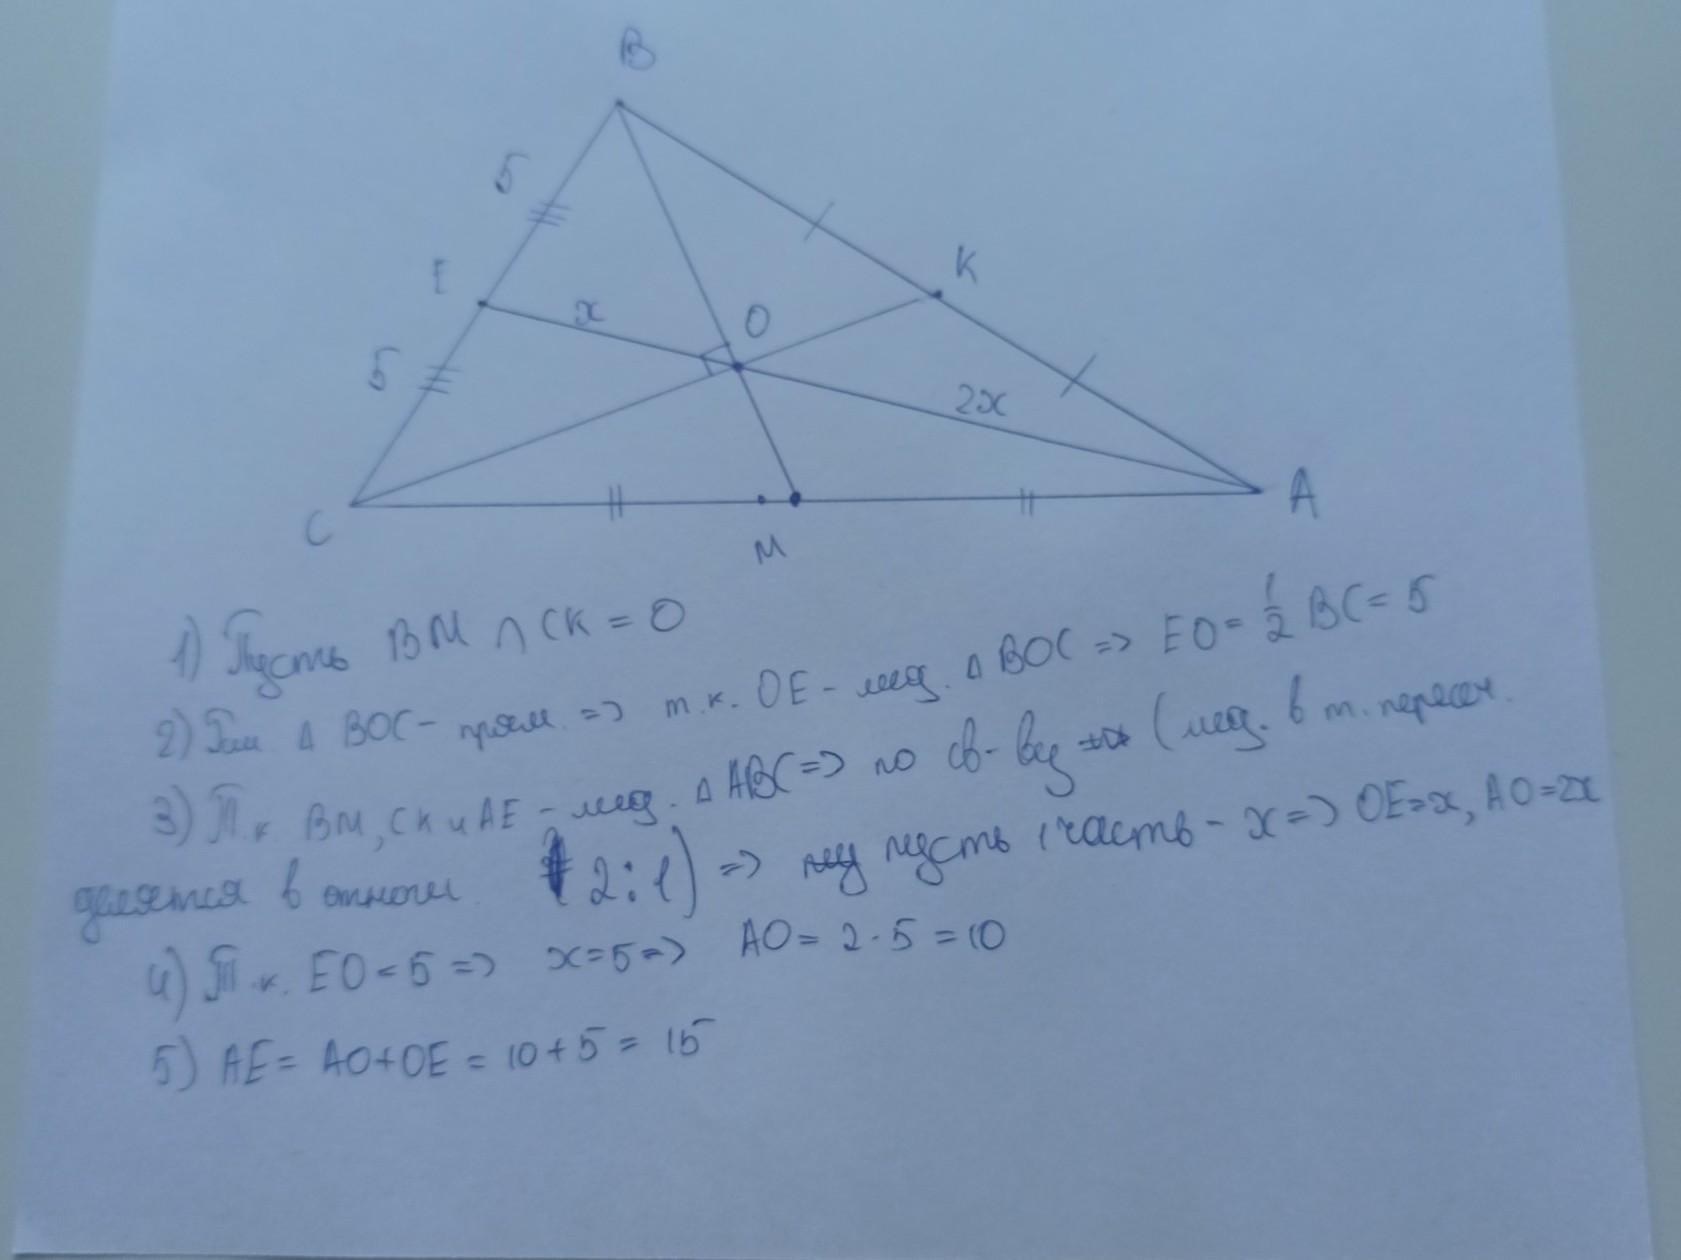 B
5
E
K
x
O
5
2x
C
M
A
1) Пусть BM ∩ CK = O
2) △ BOC - прям. => т.к. OE - мед. △ BOC => EO = 1/2 BC = 5
3) Т.к BM, CK и AE - мед. △ ABC => по св-ву (мед. в т. пересеч.
делятся в отнош. 2:1) => пусть 1 часть - x => OE = x, AO = 2x
4) Т.к. EO = 5 => x = 5 => AO = 2 · 5 = 10
5) AE = AO + OE = 10 + 5 = 15